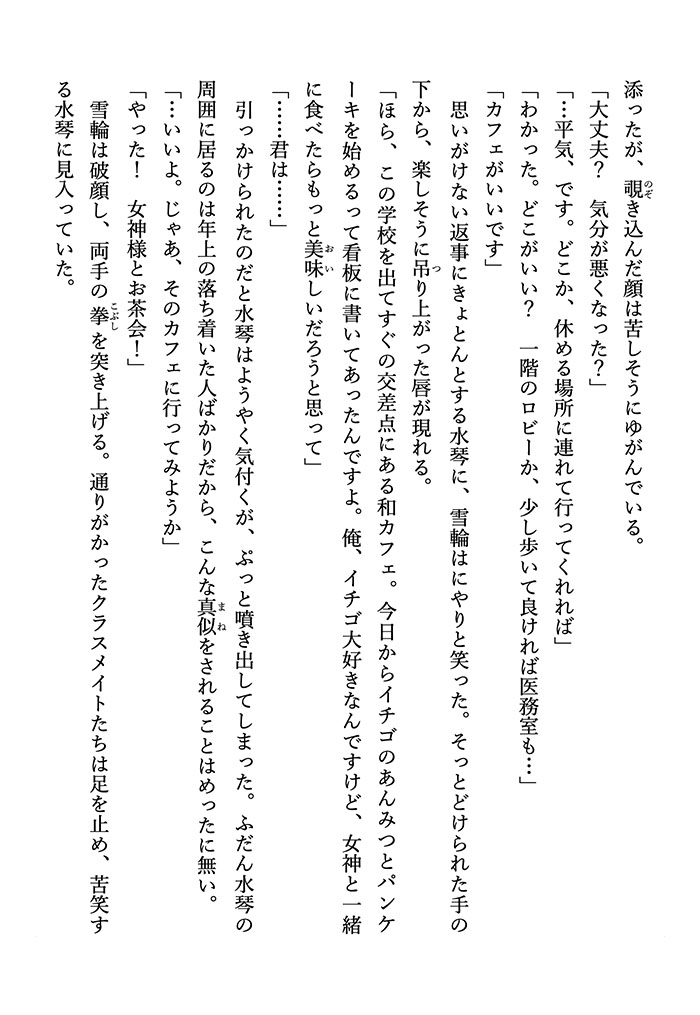 添ったが、覗き込んだ顔は苦しそうにゆがんでいる。
「大丈夫？　気分が悪くなった？」
「…平気、です。どこか、休める場所に連れて行ってくれれば」
「わかった。どこがいい？　一階のロビーか、少し歩いて良ければ医務室も…」
「カフェがいいです」
　思いがけない返事にきょとんとする水琴に、雪輪はにやりと笑った。そっとどけられた手の
下から、楽しそうに吊り上がった唇が現れる。
「ほら、この学校を出てすぐの交差点にある和カフェ。今日からイチゴのあんみつとパンケ
ーキを始めるって看板に書いてあったんですよ。俺、イチゴ大好きなんですけど、女神と一緒
に食べたらもっと美味しいだろうと思って」
「……君は……」
　引っかけられたのだと水琴はようやく気付くが、ぷっと噴き出してしまった。ふだん水琴の
周囲に居るのは年上の落ち着いた人ばかりだから、こんな真似をされることはめったに無い。
「…いいよ。じゃあ、そのカフェに行ってみようか」
「やった！　女神様とお茶会！」
　雪輪は破顔し、両手の拳を突き上げる。通りがかったクラスメイトたちは足を止め、苦笑す
る水琴に見入っていた。